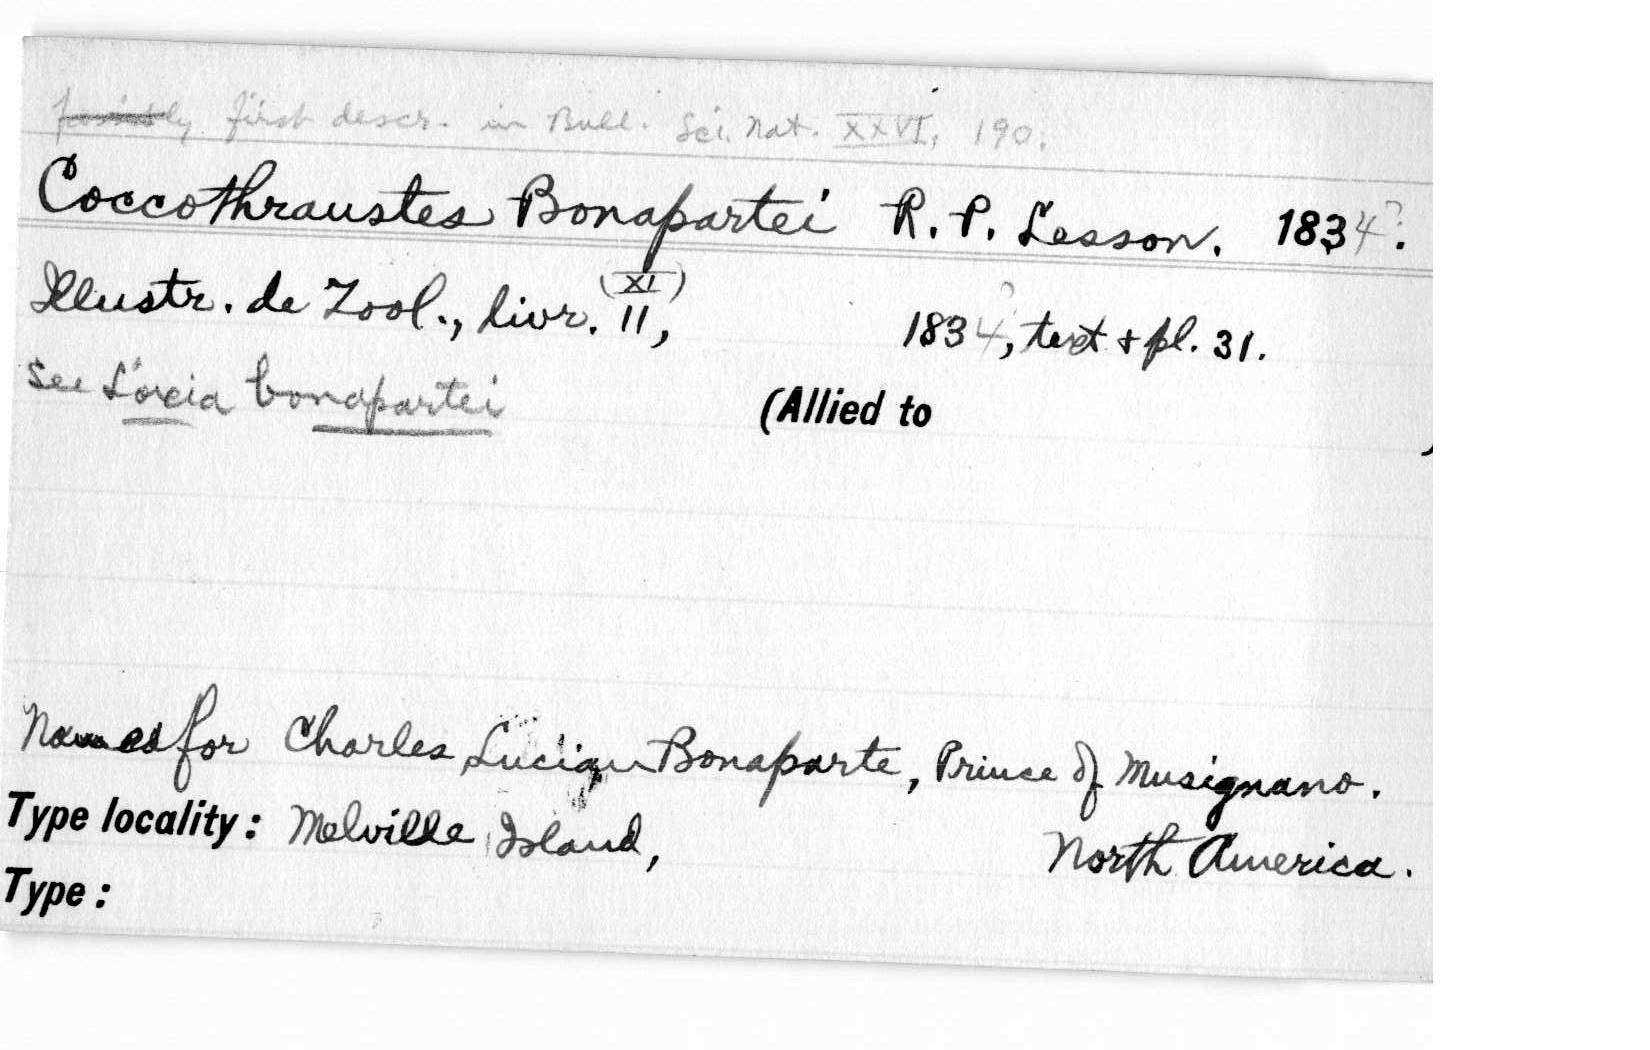 possibly first descr. in Bull. Sci. Nat. XXVI, 190.
Coccothraustes Bonapartei R. P. Lesson. 1834?.
(XI)
Illustr. de Zool., livr. 11, 1834?, text & pl. 31.
See Loxia bonapartei
(Allied to )
Named for Charles Lucian Bonaparte, Prince of Musignano.
Type locality: Melville Island, North America.
Type: